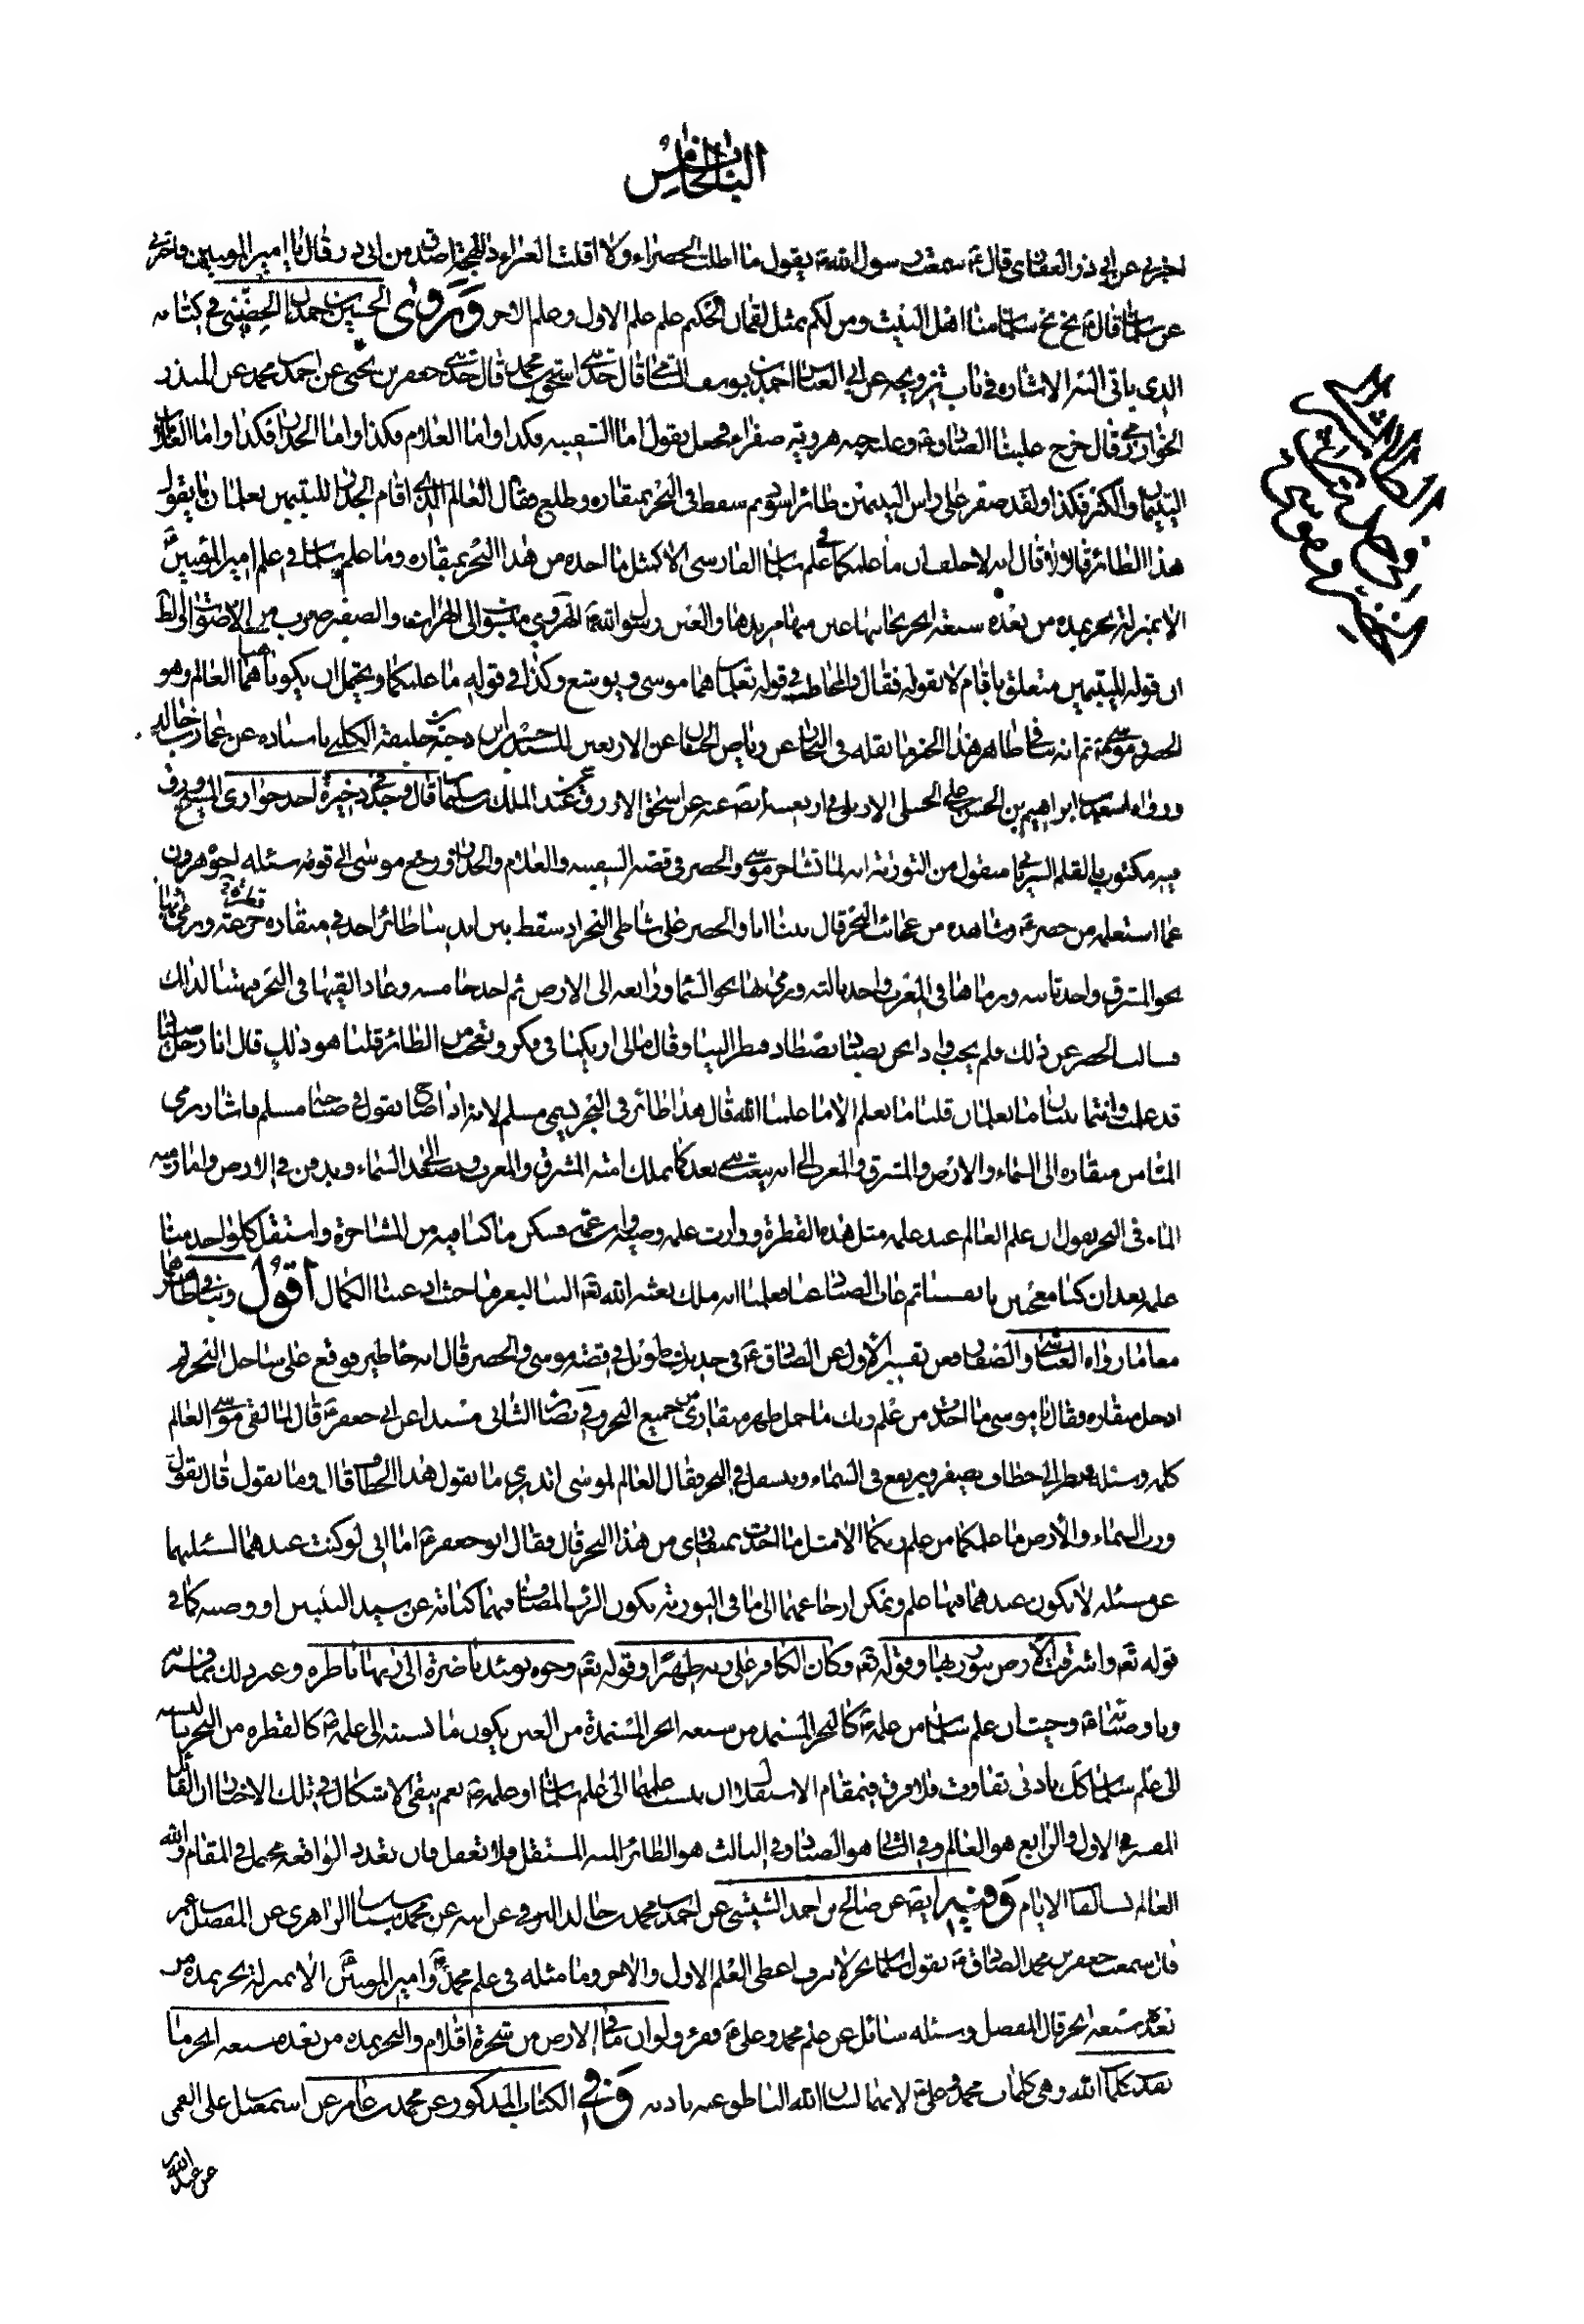 الباب الخامس
اخبرني عن ابي ذر الغفاري قال ع سمعت رسول الله ص يقول ما اظلت الخضراء ولا اقلت الغبراء ذا لهجة اصدق من ابي ذر قال يا امير المومنين فاخبرني
عن سلمان قال ع بخ بخ سلمان منا اهل البيت ومن لكم بمثل لقمان الحكيم علم علم الاول وعلم الاخر وروى الحسين بن حمدان الحضيني في كتابه
الذي ياتي اليه الاشارة في باب تزويجه عن ابي العباس احمد بن يوسف الشامي قال حدثني اسحق بن محمد قال حدثني جعفر بن يحيى عن احمد بن محمد عن المنذر
الخوارزمي قال خرج علينا الصادق ع وعليه جبة هروية صفراء فجعل يقول اما السفينة فكذا واما الغلام فكذا واما الجدار فكذا واما
اليتيمان والكنز فكذا ولقد صفر على راس اليتيمين طائر اسود ثم سقط في البحر بمنقاره وطلع فقال العالم الذي اقام الجدار لليتيمين تعلمان ما يقول
هذا الطائر قالا لا قال انه لاحلف ان ما علمكما في علم سلمان الفارسي الا كمثل ما اخذه من هذا البحر بمنقاره وما علم سلمان في علم امير المؤمنين ع
الا بمنزلة بحر يمده من بعده سبعة ابحر بحاسها عين منها مريدها والعين رسول الله ص الهروي منسوب الى الهرات والصفير ضرب من الاصوات والظاهر
ان قوله لليتيمين متعلق باقام لا بقوله فقال والمخاطب في قوله تعلمان هما موسى ويوشع وكذا في قوله ما علمكما ويحتمل ان يكونا هما العالم وهو
الخضر وموسى ع ثم انه ينافي ظاهر هذا الخبر ما نقله في البحار عن رياض الجنان عن الاربعين للسيد حسين بن دحية بن خليفة الكلبي باسناده عن عمار بن خالد
ورواه اسعد بن ابراهيم بن الحسن بن علي الحنبلي الاربلي في اربعينه ايضا عنه عن اسحق الازرق عن عبد الملك بن سليمان قال وجد في ذخيرة احد حواري المسيح رق
فيه مكتوب بالقلم السرياني منقول من التورية انه لما تشاجر موسى والخضر في قصة السفينة والغلام والجدار ورجع موسى الى قومه سئله اخوه هرون
عما استعلمه من خضر ع وشاهده من عجائب البحر قال بينا انا والخضر على شاطئ البحر اذ سقط بين ايدينا طائر اخذ في منقاره قطرة ورمى بها
نحو المشرق واخذ ثانيه ورماها في المغرب واخذ ثالثه ورمى بها نحو السماء ورابعه الى الارض ثم اخذ خامسه وعاد القيها في البحر فبهتنا لذلك
فسالت الخضر عن ذلك فلم يجب واذا نحن بصياد يصطاد فنظر الينا وقال مالي اريكما في فكر وتعجب من الطائر قلنا هو ذلك قال انا رجل صياد
قد علمت وانتما نبيان ما تعلمان قلنا ما نعلم الا ما علمنا الله قال هذا طائر في البحر يسمى مسلم لانه اذا صاح يقول في صياحه مسلم فاشار برمي
الماء من منقاره الى السماء والارض والمشرق والمغرب الى انه يبعث نبي بعدكما يملك امته المشرق والمغرب ويصعد الى السماء ويدفن في الارض واما رميه
الماء في البحر يقول ان علم العالم عند علمه مثل هذه القطرة ووارث علمه وصيه وابن عمه فسكن ما كنا فيه من المشاجرة واستقل كل واحد منا
علمه بعد ان كنا معجبين بانفسنا ثم غاب الصياد عنا فعلمنا انه ملك بعثه الله تع الينا ليعرفنا حيث ادعينا الكمال اقول وينافي ظاهرهما
معا ما رواه العياشي والصفار فعن تفسير الاول عن الصادق ع في حديث طويل في قصة موسى والخضر قال ثم جاء طير فوقع على ساحل البحر ثم
ادخل منقاره فقال يا موسى ما اخذت من علم ربك ما حمل ظهر منقاري من جميع البحر وفي بصائر الثاني مسندا عن ابي جعفر ع قال لما لقى موسى العالم
كلمه وسئله نظر الى خطاف يصفر ويرتفع في السماء ويتسفل في البحر فقال العالم لموسى اتدري ما يقول هذا الخطاف قال وما يقول قال يقول
ورب السماء والارض ما علمكما من علم ربكما الا مثل ما اخذت بمنقاري من هذا البحر قال فقال ابو جعفر ع اما اني لو كنت عندهما لسئلتهما
عن مسئلة لا يكون عندهما فيها علم ويمكن ارجاعهما الى ما في التورية بكون الرب المضاف فيهما كناية عن سيد النبيين او وصيه كما في
قوله تع واشرقت الارض بنور ربها وقوله تع وكان الكافر على ربه ظهيرا وقوله تع وجوه يومئذ ناضرة الى ربها ناظرة وغير ذلك مما فسر به
وباوصيائه ع وحيث ان علم سلمان من علمه ع كالبحر المستمد من سبعة ابحر المستمدة من العين يكون ما نسبته الى علمه ع كالقطرة من البحر بالنسبة
الى علم سلمان كل بادنى تفاوت فلا فرق في مقام الاستقلال ان ينسب علمهما الى علم سلمان او علمه ع نعم يبقى الاشكال في تلك الاخبار ان القائل
المفسر في الاول والرابع هو العالم وفي الثاني هو الصياد وفي الثالث هو الطائر المستقل ولا تغفل فان تعدد الواقعة محتمل في المقام والله
العالم وفيه ايضا عن صالح بن احمد الشيشي عن احمد بن محمد بن خالد البرقي عن ابيه عن محمد بن سنان الزاهري عن المفضل بن عمر
قال سمعت جعفر بن محمد الصادق ع يقول سلمان بحر لا ينزف اعطى العلم الاول والاخر وما مثله في علم محمد ص وامير المومنين ع الا بمنزلة بحر يمده من
بعده سبعة ابحر قال المفضل وسئله سائل عن علم محمد وعلي ع فقرء ولو ان ما في الارض من شجرة اقلام والبحر يمده من بعده سبعة ابحر ما
نفدت كلمات الله وهي كلمات محمد وعلي ع لانهما لسان الله الناطق عنه باذنه وفي الكتاب المذكور عن محمد بن عامر عن اسمعيل بن علي القمي
عن عبد الله